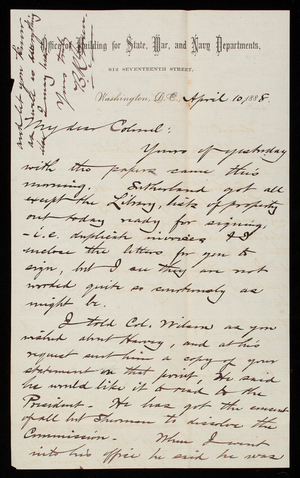 Office of Building for State, War, and Navy Departments,
612 SEVENTEENTH STREET,
Washington, D.C., April 10, 1888.
My dear Colonel:
Yours of yesterday
with the papers came this
morning. Sutherland got all
except the Library, lists of property
out today ready for signing,
- i.e. duplicate invoices &
enclose the letters for you to
sign, but I see they are not
worded quite so smoothly as
might be.
I told Col. Wilson as you
wished about Harvey, and at his
request sent him a copy of your
statement on that point, He said
he would like it to read to the
President - He has got the consent
of all but Thurman to dissolve the
Commission. When I went
into his office he said he was
and
as well as
Yours truly